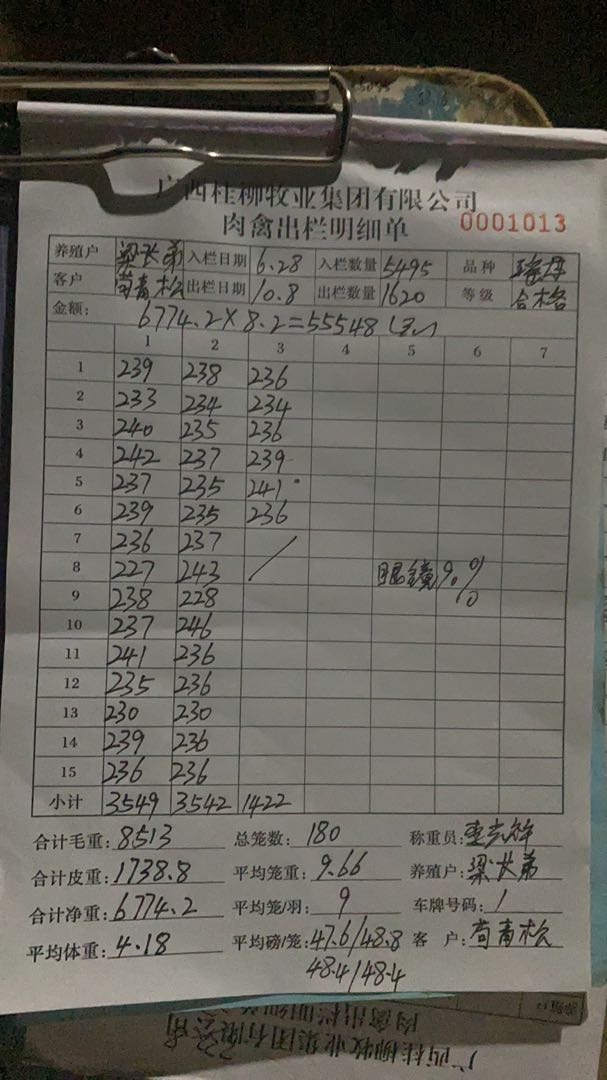 广西桂柳牧业集团有限公司
肉禽出栏明细单 0001013
养殖户 梁长弟 入栏日期 6.28 入栏数量 5495 品种
客户 苟青松 出栏日期 10.8 出栏数量 1620 等级 合格
金额: 6774.2×8.2=55548
1 2 3 4 5 6 7
1 239 238 236
2 233 234 234
3 240 235 236
4 242 237 239
5 237 235 241
6 239 235 236
7 236 237
8 227 243 眼镜9%
9 238 228
10 237 246
11 241 236
12 235 236
13 230 230
14 239 236
15 236 236
小计 3549 3542 1422
合计毛重: 8513 总笼数: 180 称重员:
合计皮重: 1738.8 平均笼重: 9.66 养殖户: 梁长弟
合计净重: 6774.2 平均笼/羽: 9 车牌号码: /
平均体重: 4.18 平均磅/笼: 47.6/48.8 客 户: 苟青松
48.4/48.4
广西桂柳牧业集团有限公司
肉禽出栏明细单